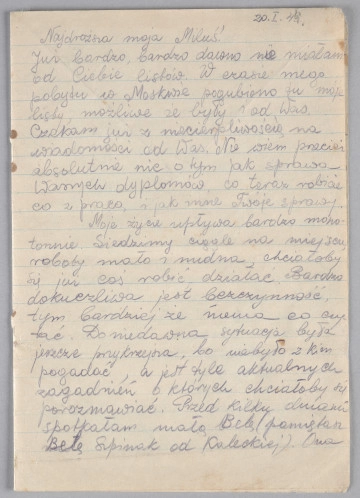 20. I. 44.
Najdroższa moja Miluś
Już bardzo, bardzo dawno nie miałam
od Ciebie listów. W czasie mego
pobytu w Moskwie pogubiono tu moje
listy, możliwe że były i od Was.
Czekam już z niecierpliwością na
wiadomości od Was. Nie wiem przecież
absolutnie nic o tym jak sprawa
Waszych dyplomów, co teraz robicie
co z pracą, i jak inne Twoje sprawy.
Moje życie upływa bardzo mono-
tonnie. Siedzimy ciągle na miejscu,
roboty mało i nudna, chciałoby
się już coś robić działać. Bardzo
dokuczliwa jest bezczynność,
tym bardziej że niema co czy-
tać. Doniedawna sytuacja była
jeszcze przykrzejsza, bo niebyło z kim
pogadać, a jest tyle aktualnych
zagadnień o których chciałoby się
porozmawiać. Przed kilku dniami
spotkałam małą Belę (pamiętasz
Belę Szpinak od Kaleckiej). Ona